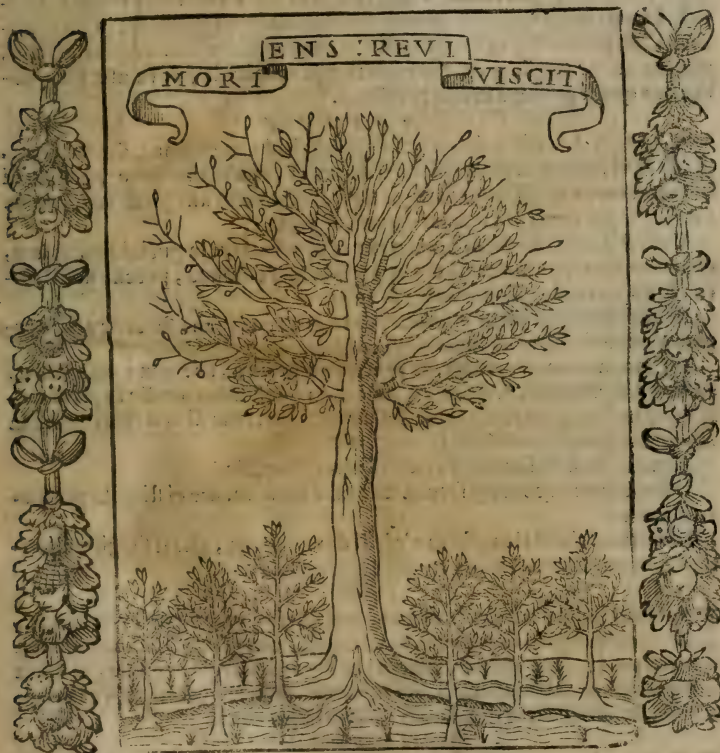 MORI ENS : REVI VISCIT